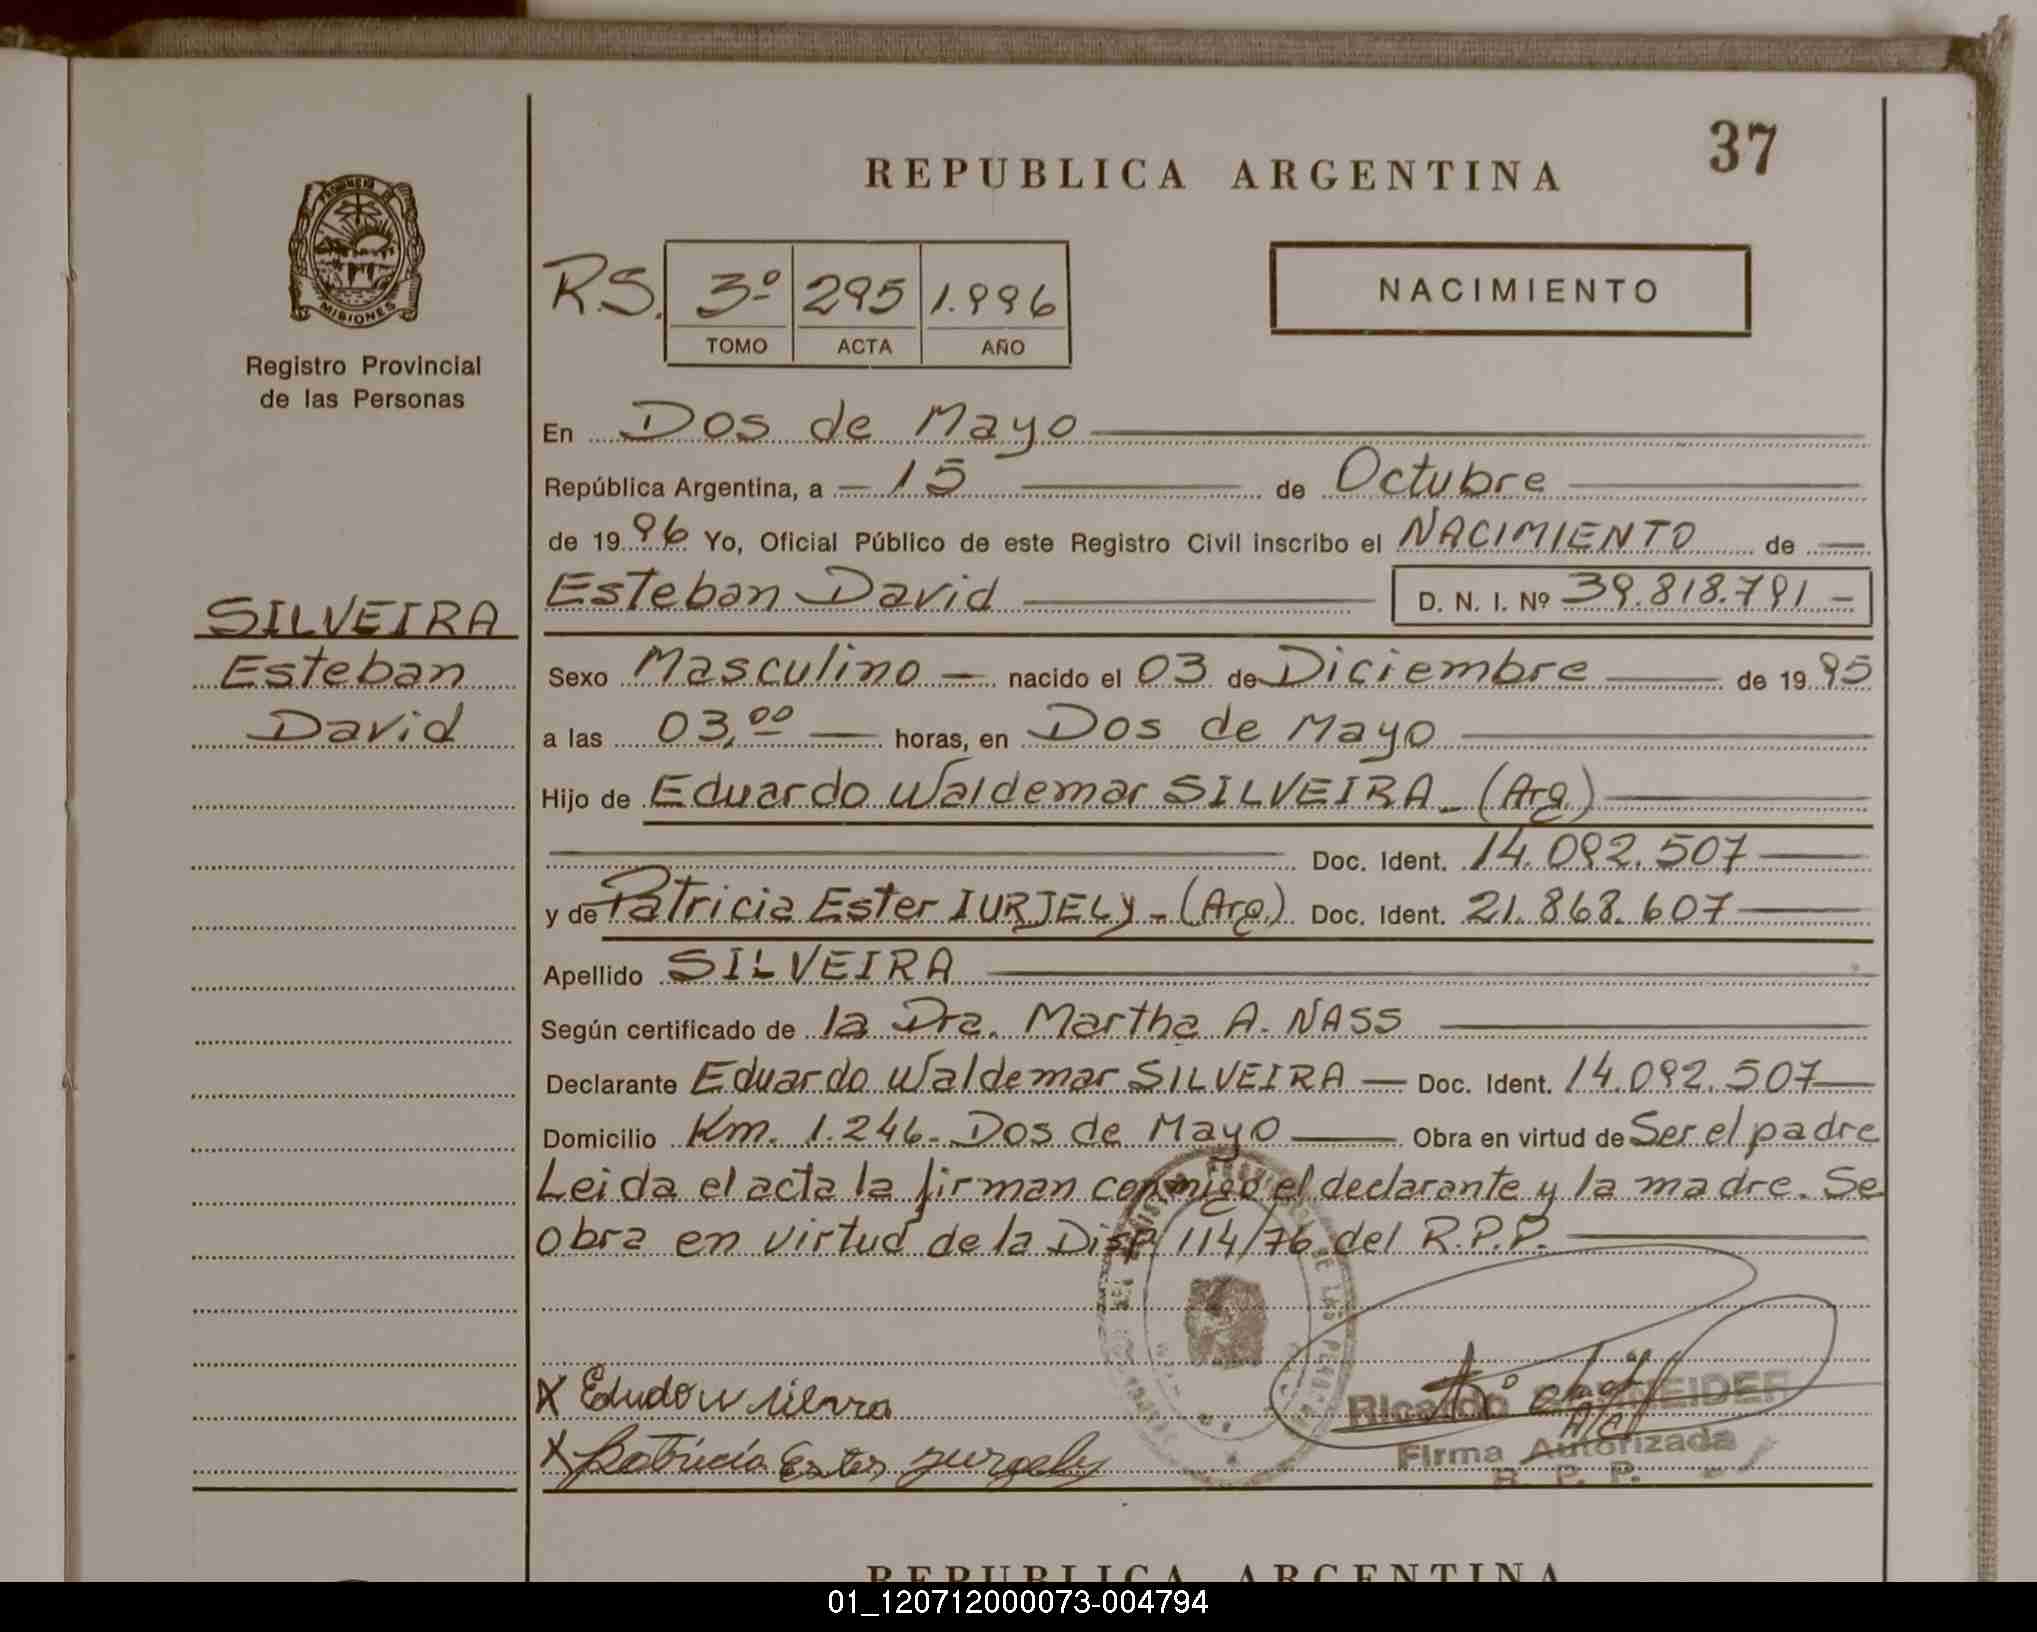 37
REPUBLICA ARGENTINA
PROVINCIA DE
MISIONES
Registro Provincial
de las Personas
R.S. 3º 295 1.996
TOMO ACTA AÑO
NACIMIENTO
En Dos de Mayo
República Argentina, a 15 de Octubre
de 1996 Yo, Oficial Público de este Registro Civil inscribo el NACIMIENTO de
Esteban David D. N. I. Nº 39.818.791
SILVEIRA
Esteban
David
Sexo Masculino nacido el 03 de Diciembre de 1995
a las 03,00 horas, en Dos de Mayo
Hijo de Eduardo Waldemar SILVEIRA - (Arg.)
Doc. Ident. 14.092.507
y de Patricia Ester IURJELY - (Arg.) Doc. Ident. 21.868.607
Apellido SILVEIRA
Según certificado de la Dra. Martha A. NASS
Declarante Eduardo Waldemar SILVEIRA Doc. Ident. 14.092.507
Domicilio Km. 1.246 - Dos de Mayo Obra en virtud de Ser el padre
Leida el acta la firman conmigo el declarante y la madre. Se
obra en virtud de la Disp. 114/76 del R.P.P.
X
Ricardo SCHNEIDER
X Patricia Ester
Firma Autorizada
R. P. P.
REPUBLICA ARGENTINA
01_120712000073-004794